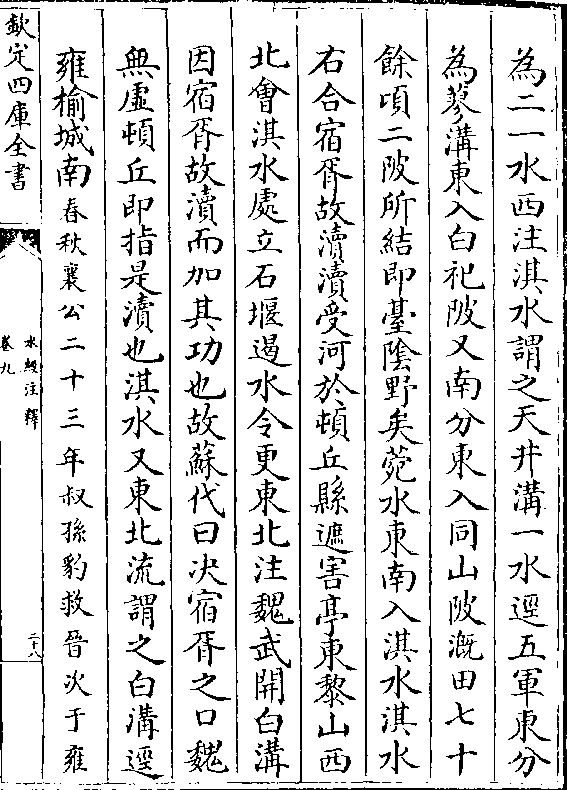 為二一水西注淇水謂之天井溝一水逕五軍東分
為蓼溝東入白祀陂又南分東入同山陂溉田七十
餘頃二陂所結即臺陰野矣菀水東南入淇水淇水
右合宿胥故瀆瀆受河於頓丘縣遮害亭東黎山西
北會淇水處立石堰遏水令更東北注魏武開白溝
因宿胥故瀆而加其功也故蘇代曰决宿胥之口魏
無虛頓丘即指是瀆也淇水又東北流謂之白溝逕
雍榆城南春秋襄公二十三年叔孫豹救晉次于雍
欽定四庫全書
水經注釋
卷九
二十八